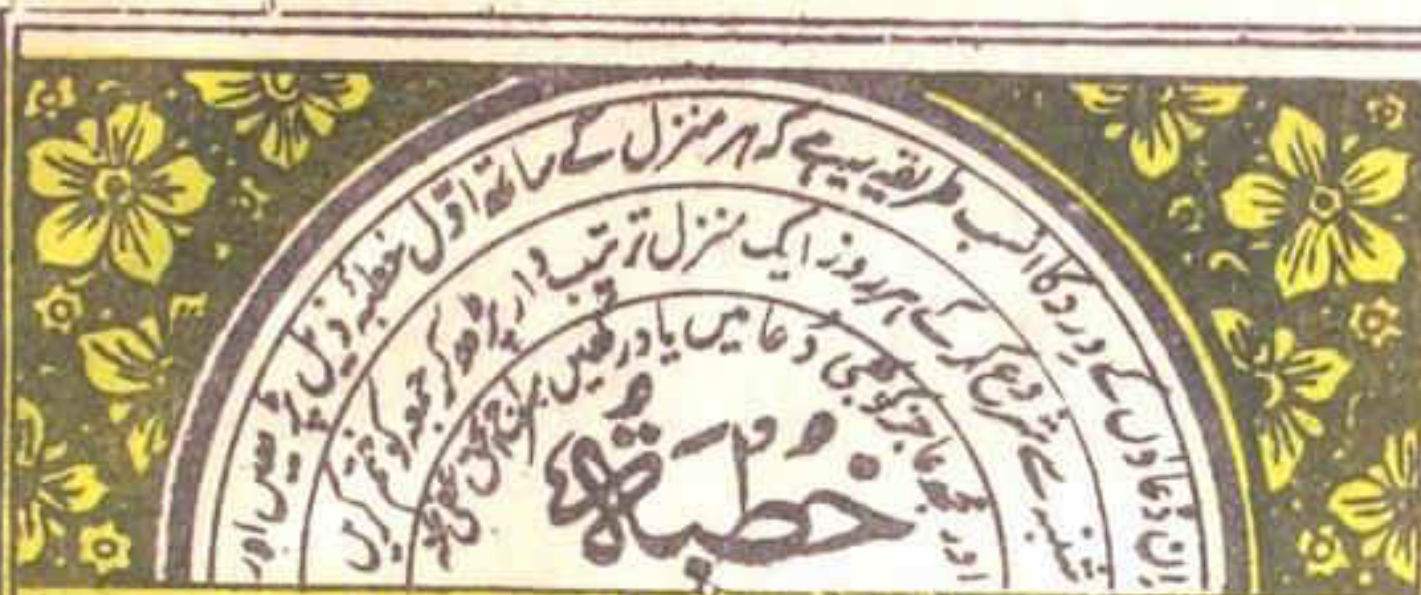 ان دعاؤں کے ورد کا انسب طریقہ یہ ہے کہ ہر منزل کے ساتھ اوّل خطبۂ ذیل پڑھیں اور
شنبہ سے شروع کر کے ہر روز ایک منزل ترتیب وار پڑھ کر جمعہ کو ختم کریں
اور مجھ عاجز کو بھی دعا میں یاد رکھیں
خُطْبَةٌ